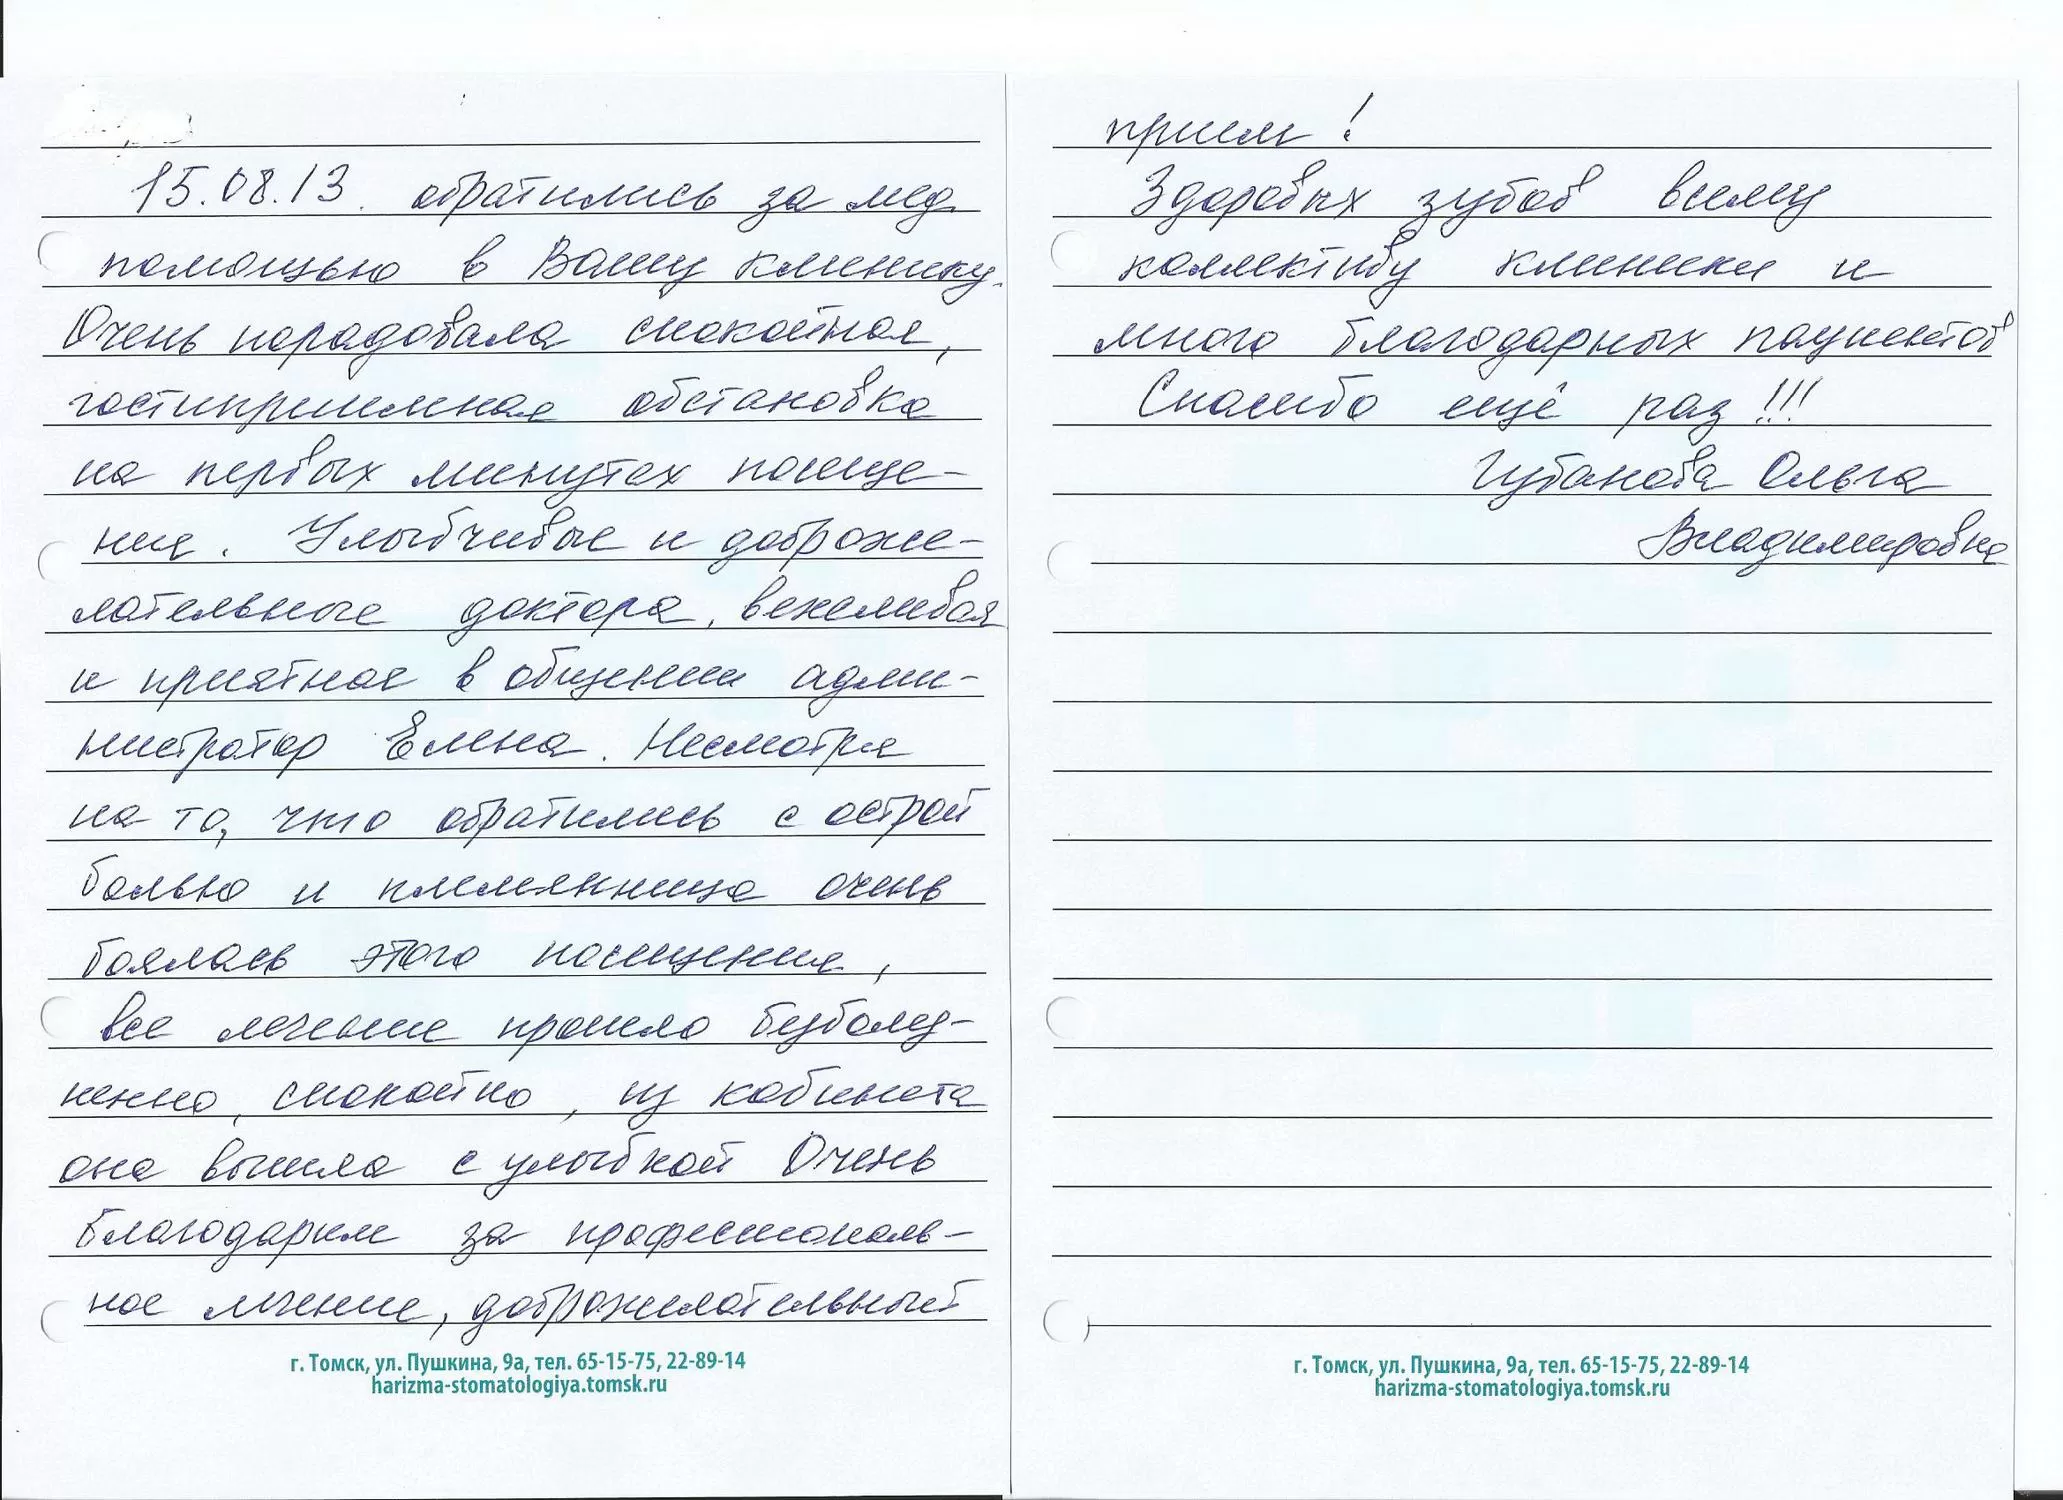 15.08.13. обратились за мед.
помощью в Вашу клинику.
Очень порадовала спокойная,
гостиприимная обстановка
на первых минутах посеще-
ния. Улыбчивые и доброже-
лательные доктора, вежеливая
и приятная в общении адми-
нистратор Елена. Несмотря
на то, что обратились с острой
болью и племянница очень
боялась этого посещения,
все лечение прошло безболез-
ненно, спокойно, из кабинета
она вышла с улыбкой Очень
благодарим за профессиональ-
ное лечение, доброжелательный
г. Томск, ул. Пушкина, 9а, тел. 65-15-75, 22-89-14
harizma-stomatologiya.tomsk.ru
прием!
Здоровых зубов всему
коллективу клиники и
много благодарных пациентов
Спасибо ещё раз!!!
Губанова Ольга
Владимировна
г. Томск, ул. Пушкина, 9а, тел. 65-15-75, 22-89-14
harizma-stomatologiya.tomsk.ru